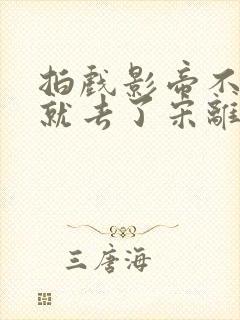 拍戏影帝不
就去了宋離
三唐海